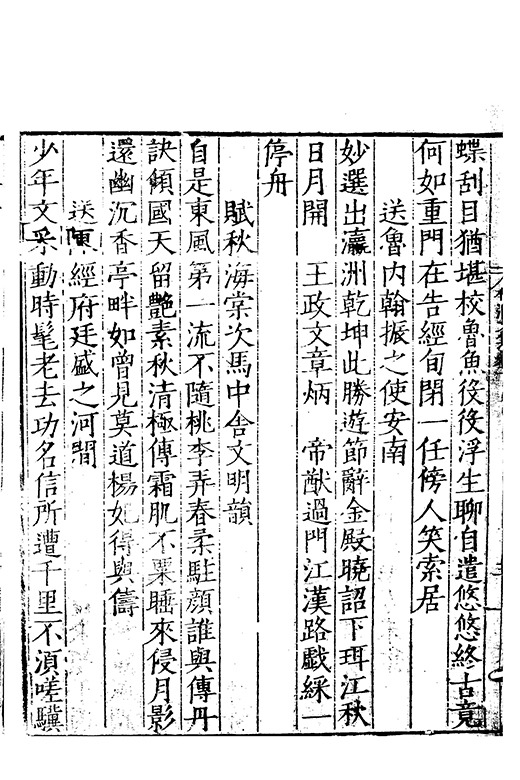 蝶刮目猶堪校魯魚役役浮生聊自遣悠悠終古竟
何如重門在告經旬閉一任傍人笑索居
送魯內翰振之使安南
妙選出瀛洲乾坤此勝遊節辭金殿曉詔下珥江秋
日月開　王政文章炳　帝猷過門江漢路戲綵一
停舟
賦秋海棠次馬中舍文明韻
自是東風第一流不隨桃李弄春柔駐顏誰與傳丹
訣傾國天留艷素秋清極傳霜肌不粟睡來侵月影
還幽沉香亭畔如曾見莫道楊妃得與儔
送陳經府廷盛之河間
少年文采動時髦老去功名信所遭千里不須嗟驥